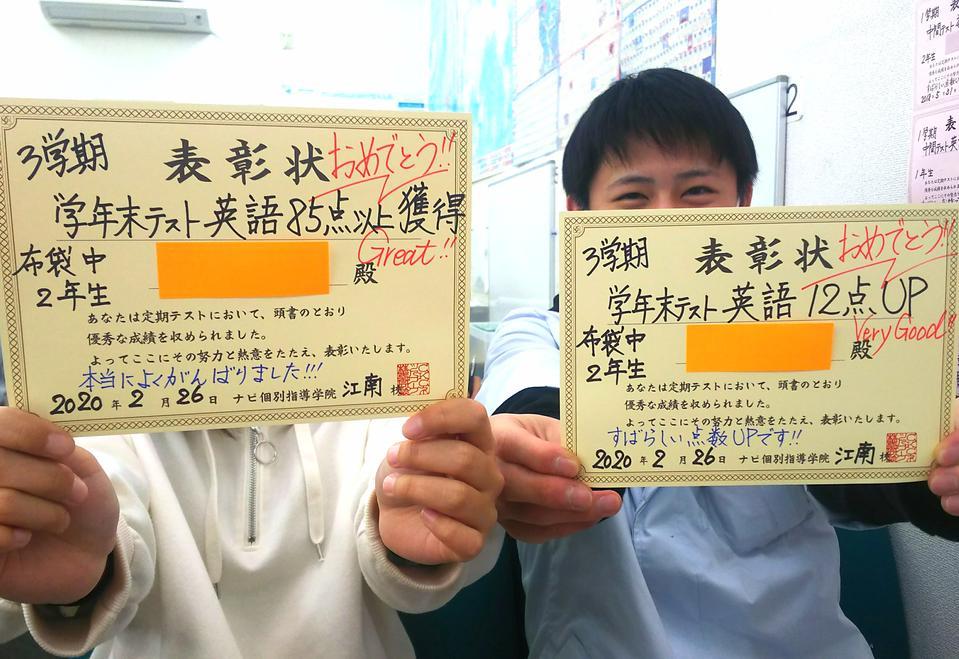 3学期 表彰状 おめでとう!!
学年末テスト 英語 85点以上獲得
Great!!
布袋中
2年生
殿
あなたは定期テストにおいて、頭書のとおり
優秀な成績を収められました。
よってここにその努力と熱意をたたえ、表彰いたします。
本当によくがんばりました!!!
2020年2月26日 ナビ個別指導学院 江南
3学期 表彰状 おめでとう!!
学年末テスト 英語 12点UP
Very Good!!
布袋中
2年生
殿
あなたは定期テストにおいて、頭書のとおり
優秀な成績を収められました。
よってここにその努力と熱意をたたえ、表彰いたします。
すばらしい点数UPです!!
2020年2月26日 ナビ個別指導学院 江南
2
1学期
中間テスト
2年生
1学期
中間テスト
1年生